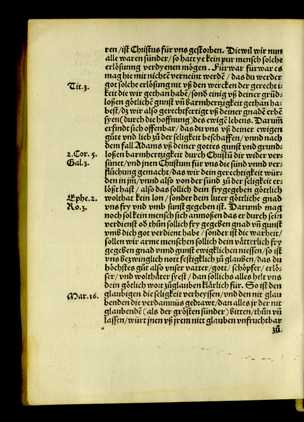 ren / ist Christus für vns gestorben. Diewil wir nun
alle waren sünder / so hatt ye kein pur mensch solche
erlösung verdyenen mögen. Fürwar fürwar es
mag hie mit nichtē verneint werdē / das du werder
Tit. 3.
got solche erlösung nit vß den wercken der gerechti
keit die wir gethan habē / sond einig vß deiner gründ
loßen götlichē gunst vñ barmhertzigkeit gethan ha
best / dz wir also gerechtfertigt vß deiner gnad erbē
syen durch die hoffnung des ewigē lebens. Darum
erfindt sich offenbar / das du vns vß deiner ewigen
güte vnd lieb zů der seligkeit beschaffen / vnnd nach
dem fall Adams vß deiner gottes gunst vnd grund-
2. Cor. 5.
loßen barmhertzigkeit durch Christū dir wider ver-
Gal. 3.
sünet / vnd jnn Christum für vns die sünd vnnd ver-
flůchung gemacht / das wir dein gerechtigkeit wür-
den in jm / vnnd also von der sünd zů der seligkeit er
löst hast / also das sollich dein frygegeben götlich
Ephe. 2.
wolthat kein lon / sonder dein luter götliche gnad
Ro. 3.
vns fry vnd vmb sunst gegeben ist. Darumb mag
noch sol kein mensch sich anmoßen das er durch sein
verdienst oď thůn sollich fry gegeben gnad vñ gunst
vmb dich got verdient habe / sonder ist die warheit /
sollen wir arme menschen sollich dein vätterlich fry
gegeben gnad vnnd gunst ewigklichen niessen / so ist
vns bezwinglich nott festigklich zů glauben / das du
höchstes gůt also vnser vatter / gott / schöpffer / erlö-
ser / vnd wolthäter syest / dan sollichs alles helt vns
dein götlich wort zůglauben klärlich für. So ist den
Mar. 16.
glaubigen die seligkeit verheyssen / vnd den nit glau
benden die verdamnüs gedrawt / dan alles jr der nit
glaubendē (als der grösten sünder) bitten / thůn vñ
lassen / würt jnen vß jrem nitt glauben vnfruchtbar
zů